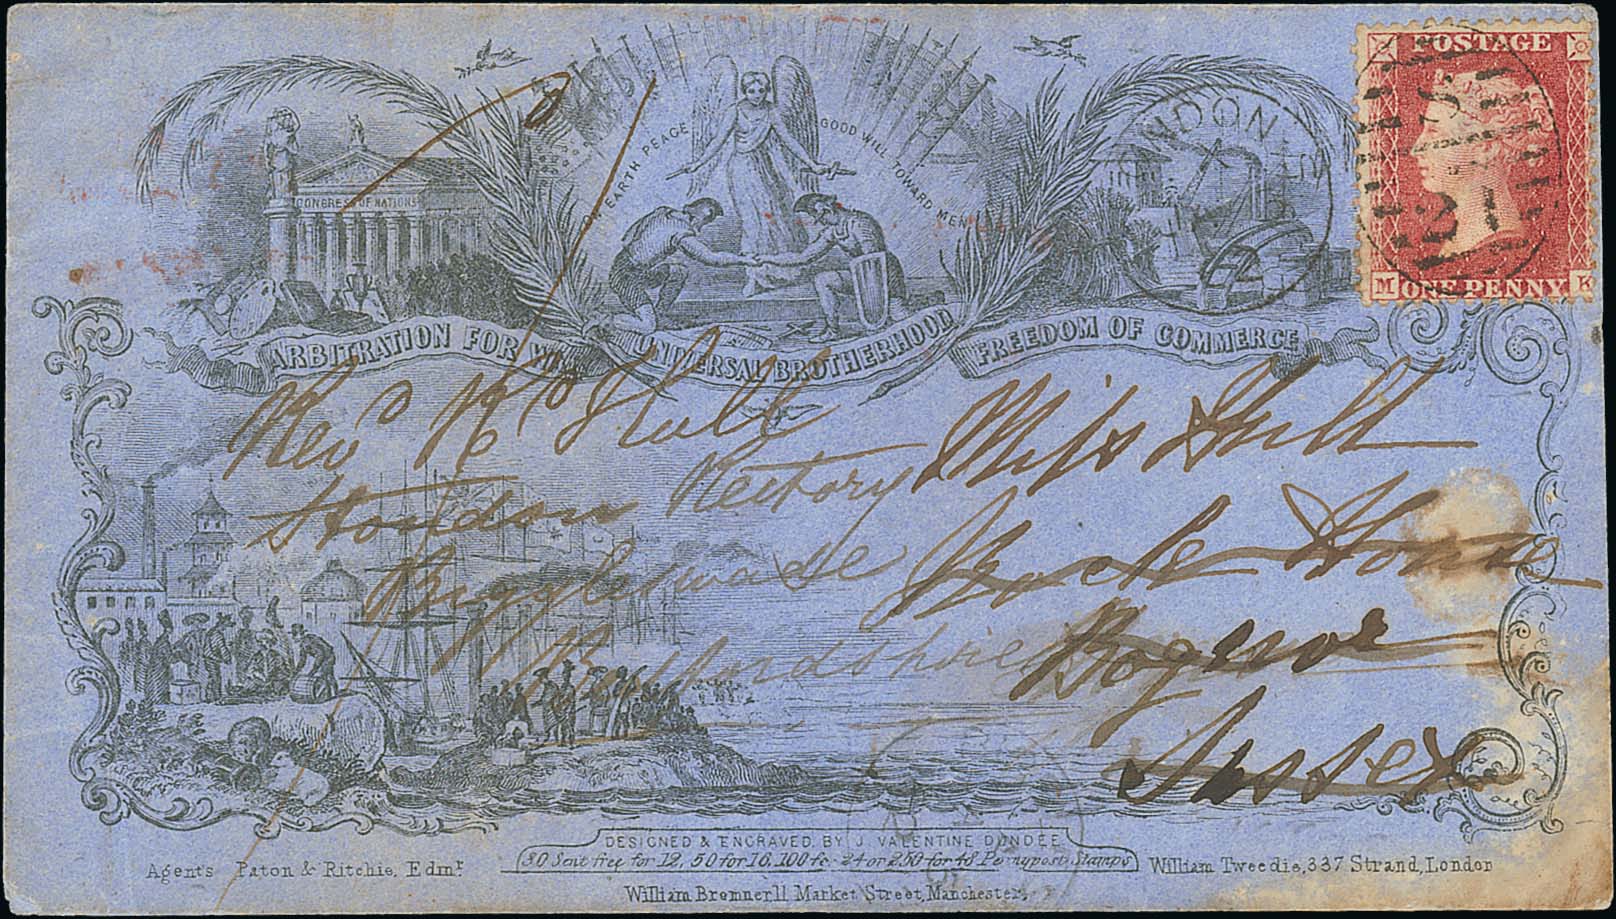 POSTAGE
LONDON
ON EARTH PEACE GOOD WILL TOWARD MEN
CONGRESS OF NATIONS
M ONE PENNY K
ARBITRATION FOR WAR
UNIVERSAL BROTHERHOOD
FREEDOM OF COMMERCE
Revd
Stondon Rectory
Biggleswade
Bedfordshire
Miss Gull
House
Bognor
Sussex
DESIGNED & ENGRAVED BY J. VALENTINE DUNDEE
30 Sent free for 12, 50 for 16, 100 fc. 24 or 250 for 48 Penny post Stamps
Agents Paton & Ritchie, Edinr
William Tweedie, 337 Strand, London
William Bremner 11 Market Street, Manchester,